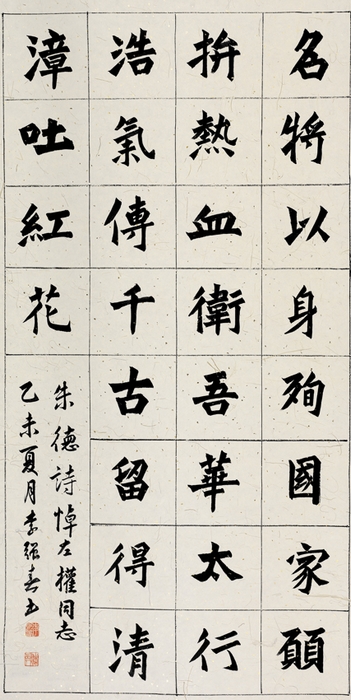 名將以身殉國家願
拚熱血衛吾華太行
浩氣傳千古留得清
漳吐紅花
朱德詩悼左權同志
乙未夏月李强春书